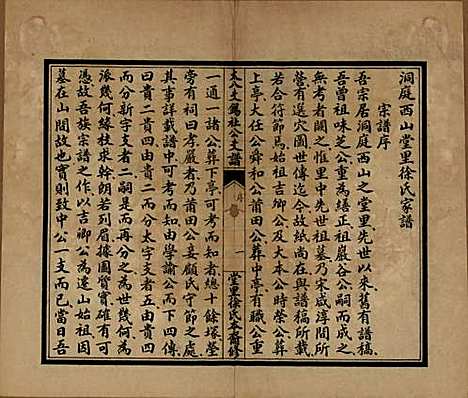 洞庭西山堂里徐氏家譜
宗譜序
吾宗居洞庭西山之堂里先世以來舊有譜稿
吾曾祖味芝公重為繕正祖巖谷公嗣而成之
無考者闕之惟里中先世祖墓乃宋咸淳間所
葬穴圖世傳迄今故紙尚存在與譜稿所載
若合符節焉始祖吉卿公及大本公時榮公葬
上亭大任公舜和公莆田公葬中亭有職公重
大分支錫祉公支譜
序
一
堂里徐氏本齋修
一通一諸公葬下亭可考而知者總十餘塚塋
旁有祠曰孝嚴乃莆田公妾顧氏守節之處
其事詳載譜中可考而知由學諭公而下四傳
曰貴一曰貴二而分太字支者五由貴四
而分新字支者二嗣是而再分之為世幾何為
派幾何其求詳幹朗若列眉據圖質實確有可
憑故吾族宗譜之作以吉卿公為遷山始祖因
墓在山間故也實則致中公一支而已當日吾